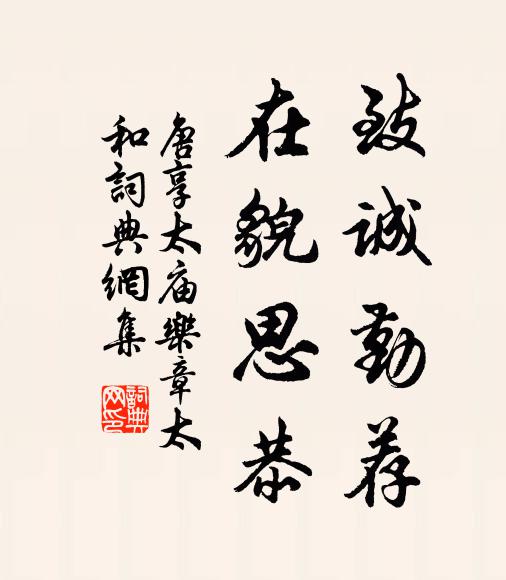 致誠勤荐
在貌思恭
唐享太庙樂章太
和詞典網集
詞典
网印